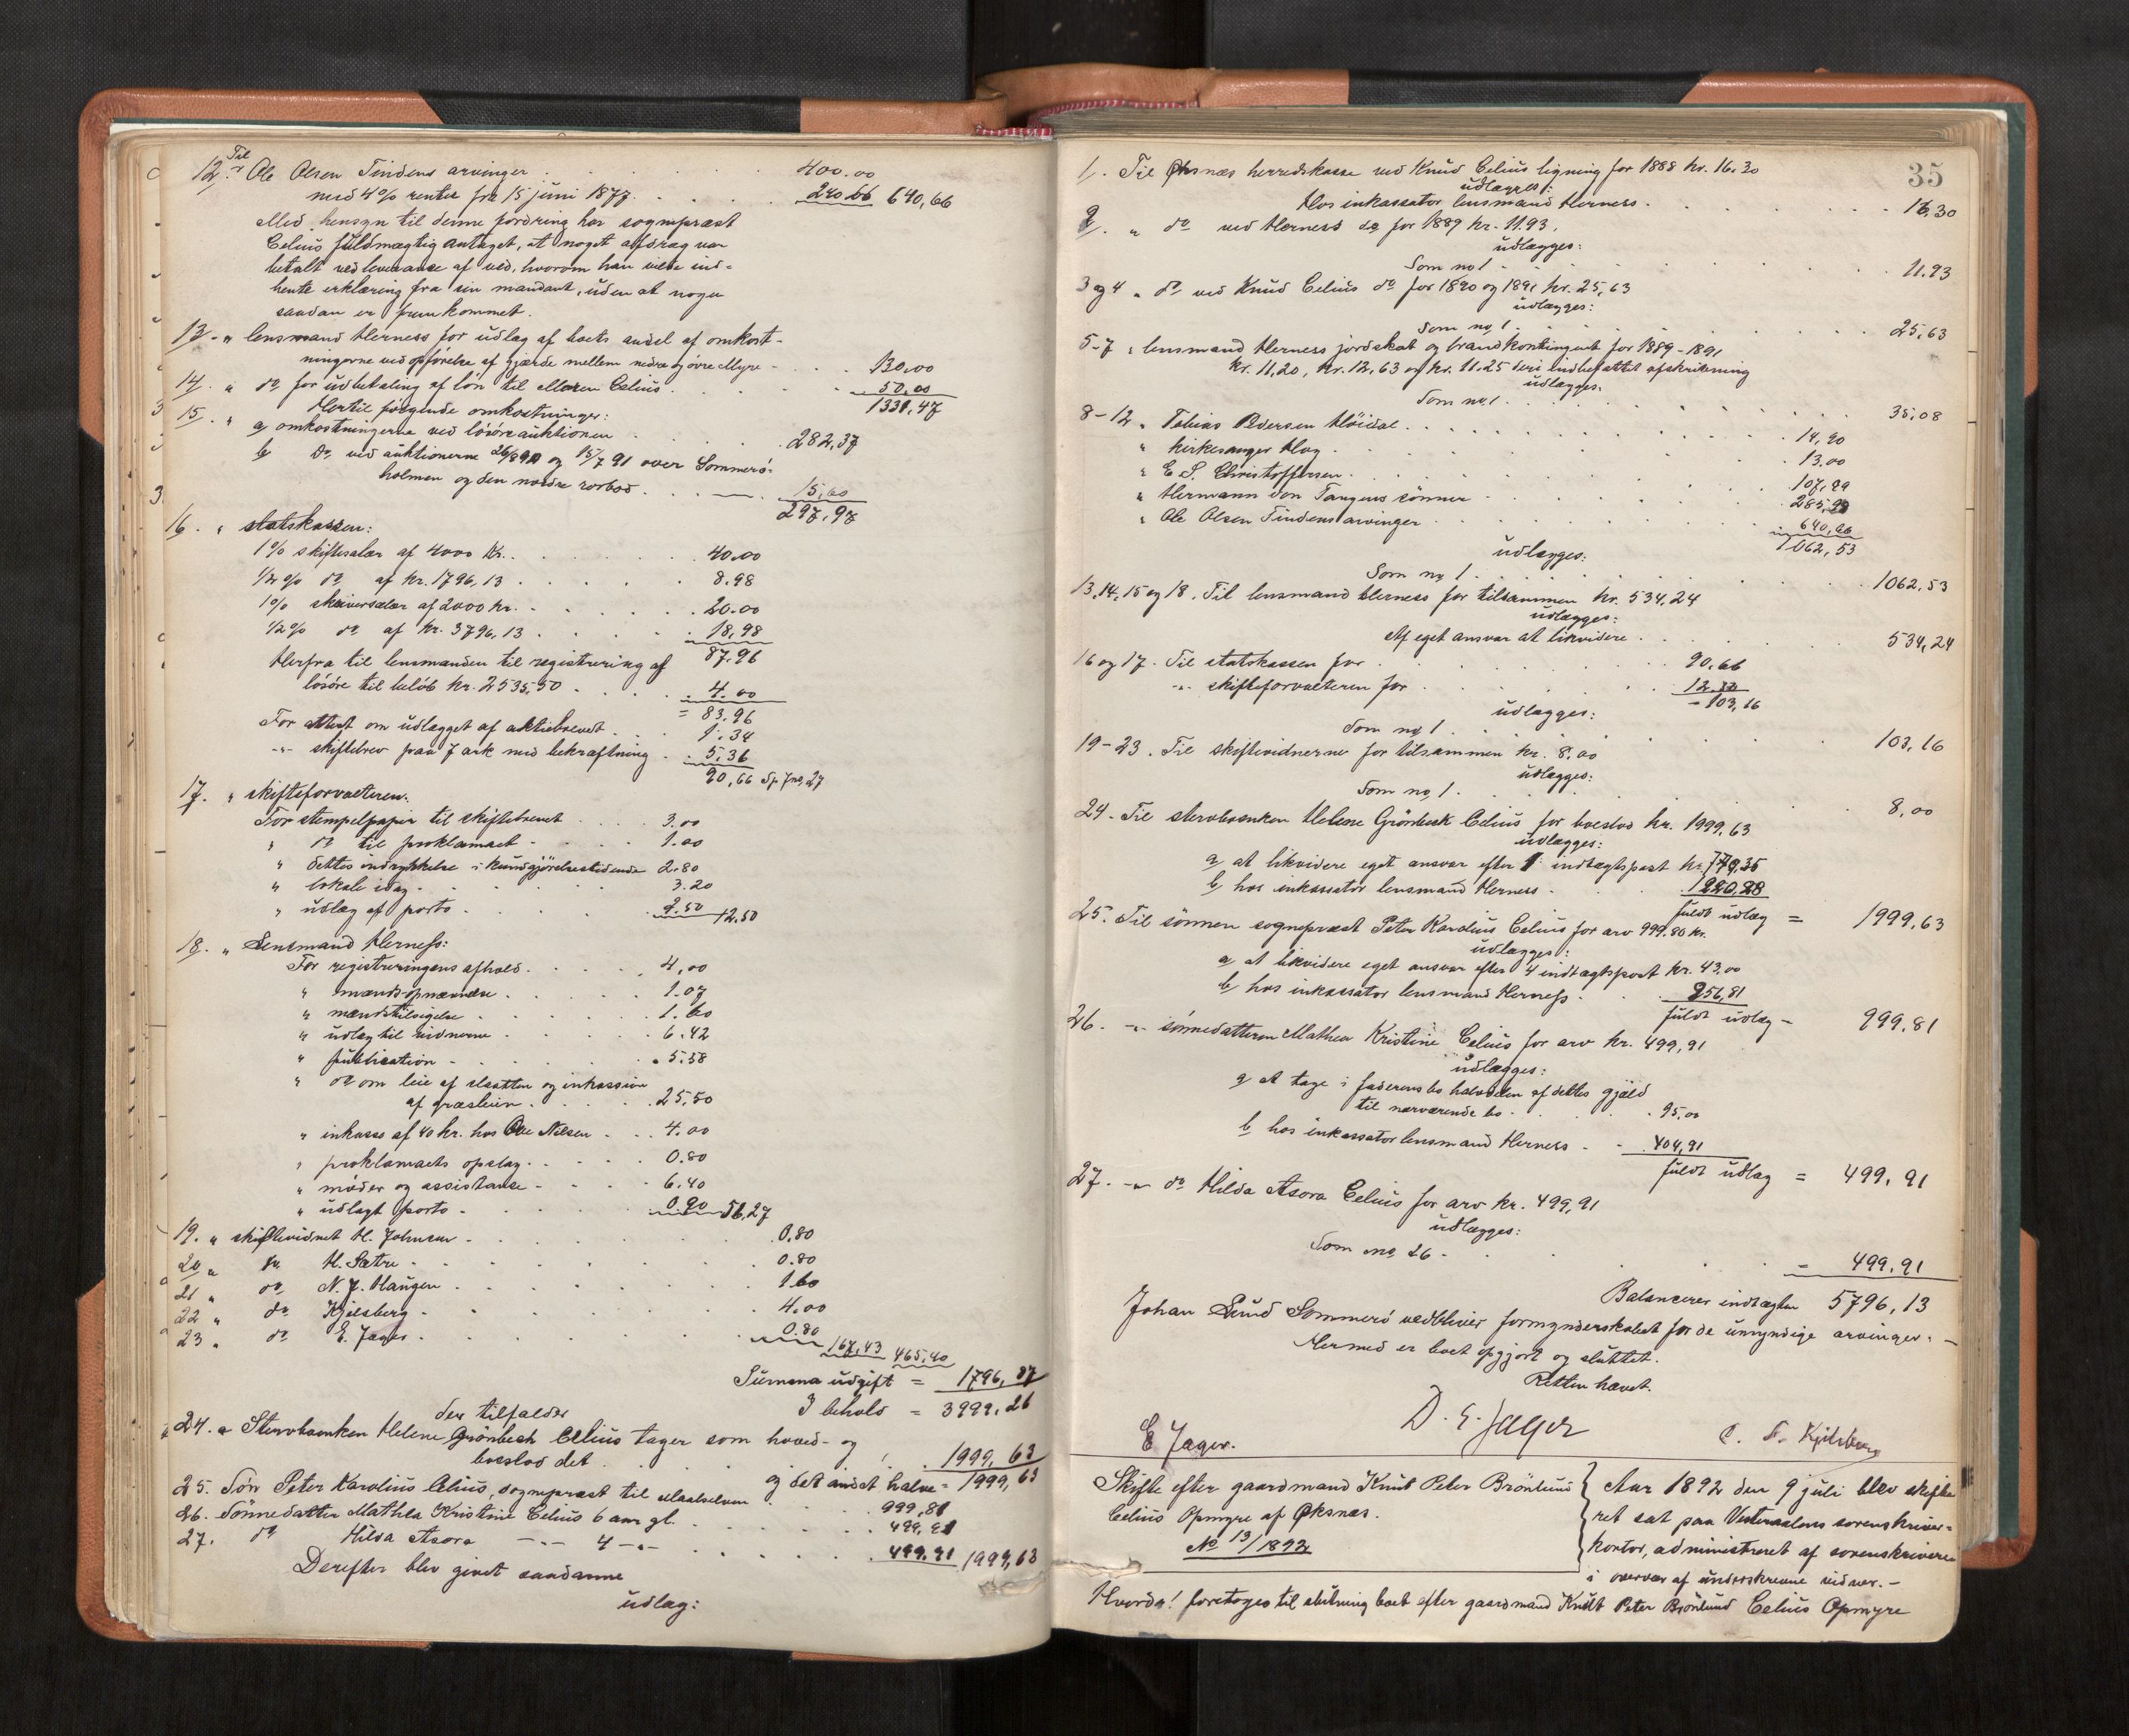 12. Til Ole Olsen Tindens arvinger . . . 400.00
med 4% renter fra 15 juni 1877. . . . 240.66 640,66
Med hensyn til denne fordring har sognepræst
Celius fuldmægtig antaget, at noget afdrag var
betalt ved leverance af ved, hvorom han vilde ind-
hente erklæring fra sin mandant, uden at nogen
saadan er fremkommet.
13 - " lensmand Herness for udlag af boets andel af omkost-
ningerne ved opførelse af gjærde mellem nedre og øvre Myre - . . 130.00
14. " do for udbetaling af løn til Maren Celius . . . 50.00
1331,47
15. " Hertil følgende omkostninger:
a omkostningerne ved løsøreauktionen . . . 282,37
b Do ved auktionerne 26/8 90 og 15/7 91 over Sommerø-
holmen og den nordre rorbod . . . 15,60
297,97
16. " statskassen:
1% skiftesalær af 4000 Kr. . . . 40.00
1/2% do af kr. 1796,13 . . . 8.98
1% skriversalær af 2000 kr. . . . 20.00
1/2% do af kr. 3796,13 . . . 18,98
87.96
Herfra til lensmanden til registrering af
løsøre til beløb kr. 2535,50 . . . 4.00
= 83.96
For attest om udlægget af aktiebrevet . . 1.34
-"- skiftebrev paa 7 ark med bekræftning . 5.36
90,66 Sp. 7 no. 27
17. " skifteforvalteren:
For stempelpapir til skiftebrevet . . . 3.00
" do til proklamaet - . . . 1.00
" dettes indrykkelse i kundgjørelsestidende 2.80
" lokale idag - . . . 3.20
" udlæg af porto . . . 2.50 12.50
18. " Lensmand Herness:
For registreringens afhold . . . 4,00
" mænds opnævnelse . . . 1.07
" mændstilsigelse . . . 1.60
" udlæg til vidnerne . . . 6.42
" publication - . . . 5.58
" do om leie af slaatten og inkassion
af græsleien . . . 25.50
" inkasso af 40 kr. hos Ole Nilsen . . . 4.00
" proklamaets opslag . . . 0.80
" møder og assistanse - . . . 6.40
" udlagt porto . . . 0.90 56,27
19. " skiftevidnet H. Johnsen - . . . 0.80
20 " do H. Sætre . . . 0.80
21 " do N. J. Haugen . . . 1.60
22 " do Kjelsberg . . . 4.00
23 " do E. Jager . . . 0.80 167,43 465,40
Summa udgift = 1796,87
I behold = 3999.26
der tilfalder
24. a Stervboenken Helene Grønbech Celius tager som hoved- og
boeslod det . . . 1999,63
og det andet halve = 1999,63
25. Søn Peter Karolius Celius, sognepræst til Maalselven . . 999,81
26. Sønnedatter Mathea Kristine Celius 6 aar gl. . . . 499,91
27. do Hilda Asora -"- 4 -"- . . . 499.91 1999,63
Derefter blev givet saadanne
udlæg:
35
1. Til Øksnæs herredskasse ved Knud Celius ligning for 1888 kr. 16.30
udlægges:
Hos inkassator lensmand Herness . . . 16.30
2. " do ved Herness do for 1889 kr. 11.93.
udlægges:
Som no 1 . . . 11.93
3 og 4 " do ved Knud Celius do for 1890 og 1891 kr. 25,63
udlægges:
Som no 1 . . . 25,63
5-7 " lensmand Herness jordskat og brandkontingent for 1889-1891
kr. 11.20, kr. 12,63 og kr. 11.25 deri indbefattet afskrivning
udlægges.
Som no 1 . . . 35.08
8-12 " Tobias Pedersen Høidal . . . 14,90
" kirkesanger Haug . . . 13.00
" E S. Christoffersen . . . 107,99
" Hermann von Tangens sønner . . . 285,98
" Ole Olsen Tindens arvinger . . . 640,66
1062,53
udlægges:
Som no 1 . . . 1062.53
13, 14, 15 og 18. Til lensmand Herness for tilsammen kr. 534,24
udlægges:
Af eget ansvar at likvidere . . . 534,24
16 og 17. Til statskassen for . . . 90.66
-"- skifteforvalteren for . . . 12.50
- 103,16
udlægges:
Som no 1 . . . 103,16
19-23. Til skiftevidnerne for tilsammen kr. 8,00
udlægges:
Som no 1 . . . 8,00
24. Til stervboenken Helene Grønbech Celius for boeslod kr. 1999,63
udlægges:
a at likvidere eget ansvar efter 1 indtægtspost kr. 779,35
b hos inkassator lensmand Herness - . 1220,28
fuldt udlæg = 1999,63
25. Til sønnen sognepræst Peter Karolius Celius for arv 999.80 kr.
udlægges:
a at likvidere eget ansvar efter 4 indtægtspost kr. 43,00
b hos inkassator lensmand Herness . . 956,81
fuldt udlæg - 999,81
26. -"- sønnedatteren Mathea Kristine Celius for arv kr. 499,91
udlægges:
a at tage i faderens bo halvdelen af dettes gjæld
til nærværende bo . . . 95.00
b hos inkassator lensmand Herness - . 404,91
fuldt udlæg = 499,91
27. -"- do Hilda Asora Celius for arv kr. 499,91
udlægges:
Som no 26 - . . . = 499.91
Balancerer indtægten 5796,13
Johan Lund Sommerø vedbliver formynderskabet for de umyndige arvinger. -
Hermed er boet opgjort og sluttet.
Retten hævet.
D. E. Jager
E Jager.
C. F. Kjelsberg
Skifte efter gaardmand Knut Peter Brønlund
Celius Opmyre af Øksnæs.
No 13/1892
Aar 1892 den 9 juli blev skifte-
ret sat paa Vesteraalens sorenskriver-
kontor, administreret af sorenskriveren
i overvær af underskrevne vidner. -
Hvorda! foretoges til slutning boet efter gaardmand Knut Peter Brønlund Celius Opmyre